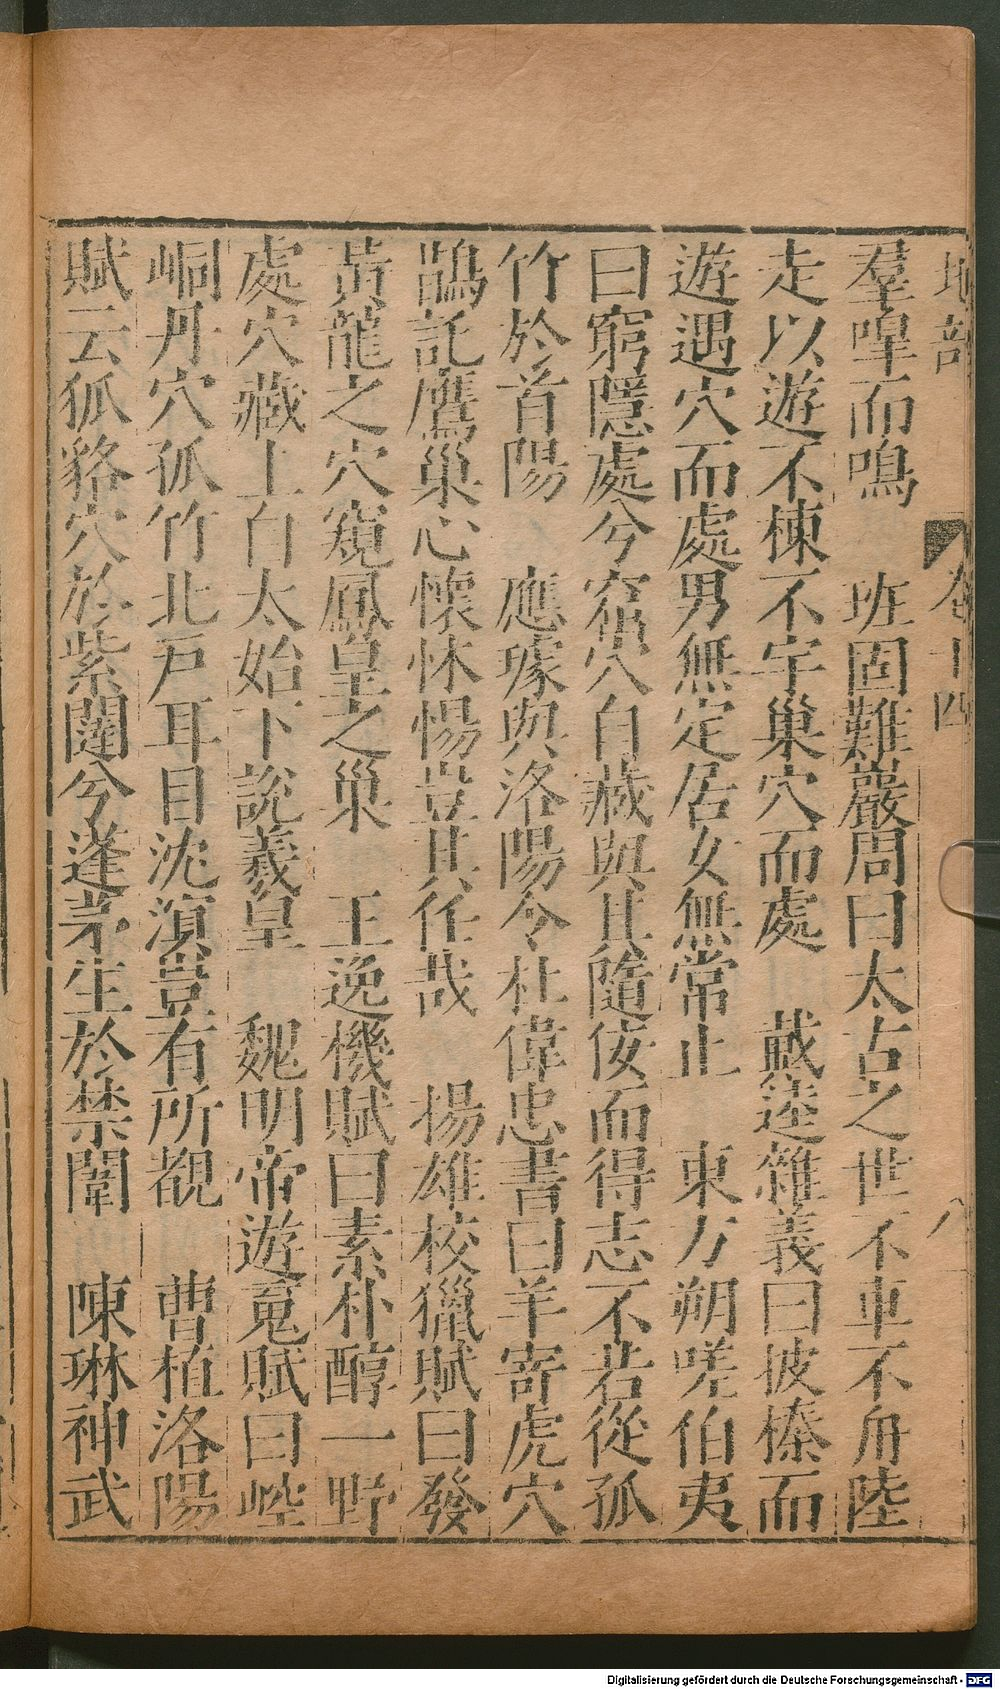 地部 卷十四 八
羣嘷而鳴 班固難嚴周曰太古之世不車不舟陸
走以遊不棟不宇巢穴而處 戴逵雜義曰彼榛而
遊遇穴而處男無定居女無常止 東方朔嗟伯夷
曰窮隱處兮窟穴自藏與其隨佞而得志不若從孤
竹於首陽 應璩與洛陽令杜偉忠書曰羊寄虎穴
鵲託鷹巢心懷怵惕豈其任哉 揚雄校獵賦曰發
黃龍之穴窺鳳皇之巢 王逸機賦曰素朴醇一野
處穴藏上自太始下說羲皇 魏明帝遊䰟賦曰崆
峒丹穴孤竹北戸耳目沈濱豈有所覩 曹植洛陽
賦云狐貉穴於紫闥兮蓬茅生於禁闈 陳琳神武
Digitalisierung gefördert durch die Deutsche Forschungsgemeinschaft - DFG